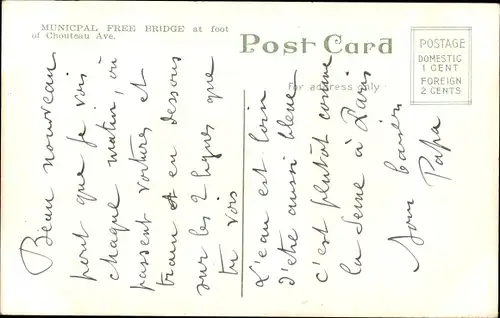 MUNICPAL FREE BRIDGE at foot
of Chouteau Ave.
Post Card
For address only
POSTAGE
DOMESTIC
1 CENT
FOREIGN
2 CENTS
Beau nouveau
pont que je vois
chaque matin, où
passent voitures et
train et en dessous
sur les 2 lignes que
tu vois
L'eau est loin
d'etre aussi bleue
c'est plutôt comme
la Seine à Paris
baiser
Papa